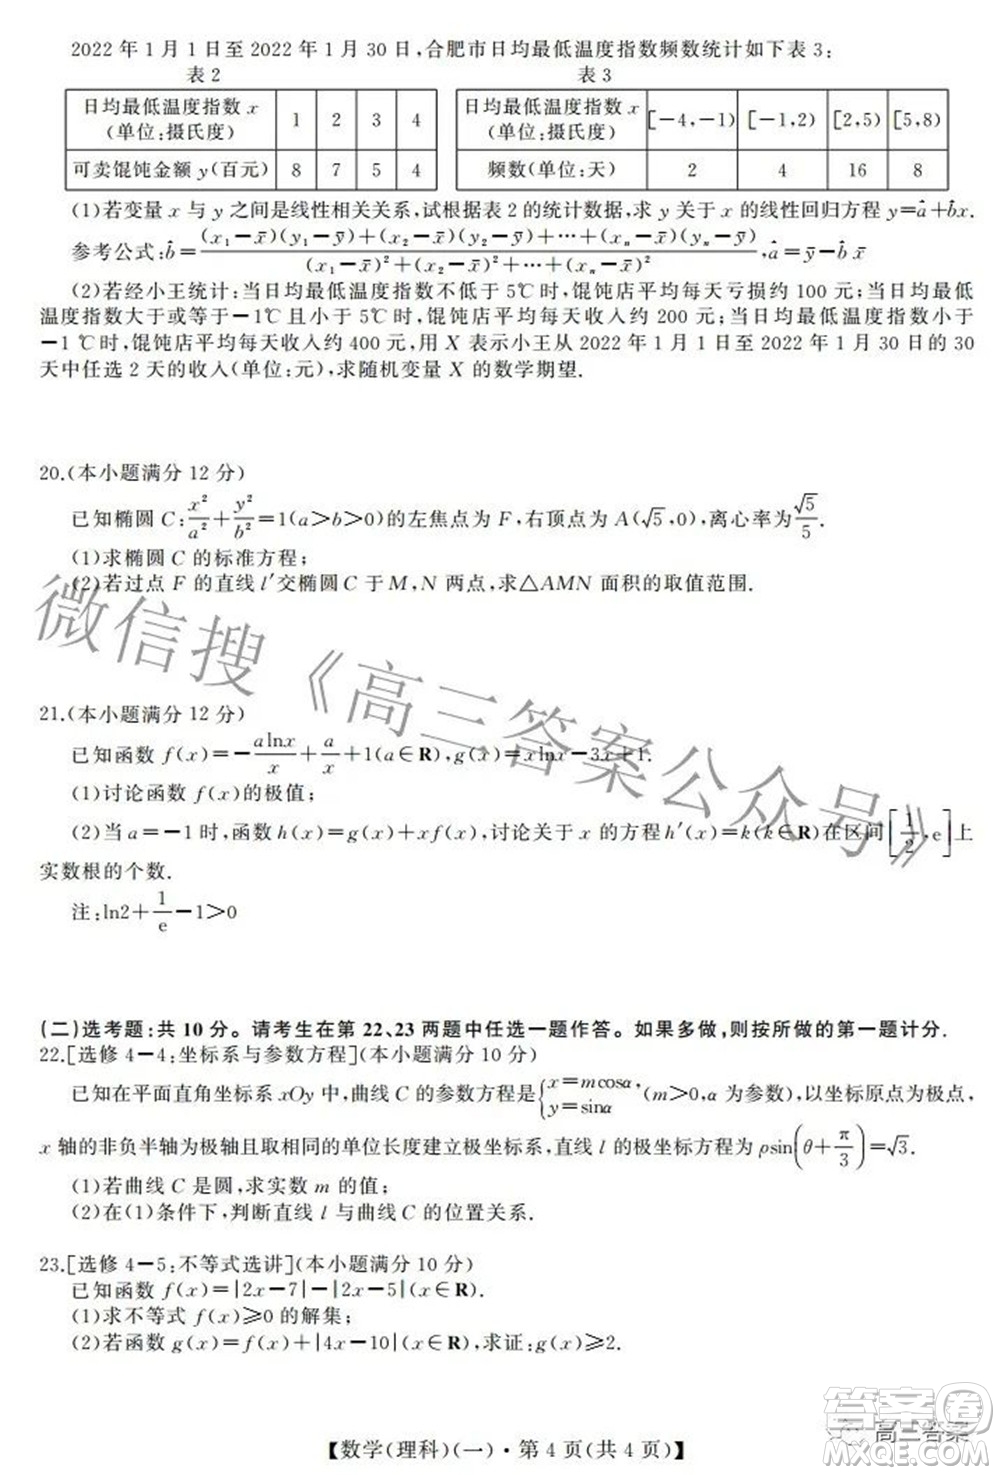 2022 年 1 月 1 日至 2022 年 1 月 30 日,合肥市日均最低温度指数频数统计如下表 3:
表 2
日均最低温度指数 x (单位:摄氏度) 1 2 3 4
可卖馄饨金额 y(百元) 8 7 5 4
表 3
日均最低温度指数 x (单位:摄氏度) [-4,-1) [-1,2) [2,5) [5,8)
频数(单位:天) 2 4 16 8
(1)若变量 x 与 y 之间是线性相关关系,试根据表 2 的统计数据,求 y 关于 x 的线性回归方程 y=â+b̂x.
参考公式:b̂=\frac{(x₁-x̄)(y₁-ȳ)+(x₂-x̄)(y₂-ȳ)+⋯+(xₙ-x̄)(yₙ-ȳ)}{(x₁-x̄)²+(x₂-x̄)²+⋯+(xₙ-x̄)²},â=ȳ-b̂x̄
(2)若经小王统计:当日均最低温度指数不低于 5℃时,馄饨店平均每天亏损约 100 元;当日均最低
温度指数大于或等于-1℃且小于 5℃时,馄饨店平均每天收入约 200 元;当日均最低温度指数小于
-1 ℃时,馄饨店平均每天收入约 400 元,用 X 表示小王从 2022 年 1 月 1 日至 2022 年 1 月 30 日的 30
天中任选 2 天的收入(单位:元),求随机变量 X 的数学期望.
20.(本小题满分 12 分)
已知椭圆 C:x²/a²+y²/b²=1(a>b>0)的左焦点为 F,右顶点为 A(√5,0),离心率为√5/5.
(1)求椭圆 C 的标准方程;
(2)若过点 F 的直线 l′交椭圆 C 于 M,N 两点,求△AMN 面积的取值范围.
21.(本小题满分 12 分)
已知函数 f(x)=-alnx/x+a/x+1(a∈R),g(x)=xlnx-3x+1.
(1)讨论函数 f(x)的极值;
(2)当 a=-1 时,函数 h(x)=g(x)+xf(x),讨论关于 x 的方程 h′(x)=k(k∈R)在区间[1/2,e]上
实数根的个数.
注:ln2+1/e-1>0
(二)选考题:共 10 分。请考生在第 22、23 两题中任选一题作答。如果多做,则按所做的第一题计分.
22.[选修 4-4:坐标系与参数方程](本小题满分 10 分)
已知在平面直角坐标系 xOy 中,曲线 C 的参数方程是{x=mcosα, y=sinα (m>0,α 为参数),以坐标原点为极点,
x 轴的非负半轴为极轴且取相同的单位长度建立极坐标系,直线 l 的极坐标方程为 ρsin(θ+π/3)=√3.
(1)若曲线 C 是圆,求实数 m 的值;
(2)在(1)条件下,判断直线 l 与曲线 C 的位置关系.
23.[选修 4-5:不等式选讲](本小题满分 10 分)
已知函数 f(x)=|2x-7|-|2x-5|(x∈R).
(1)求不等式 f(x)≥0 的解集;
(2)若函数 g(x)=f(x)+|4x-10|(x∈R),求证:g(x)≥2.
【数学(理科)(一)·第 4 页(共 4 页)】
微信搜《高三答案公众号》
答案卷
高三答案
MXQE.COM